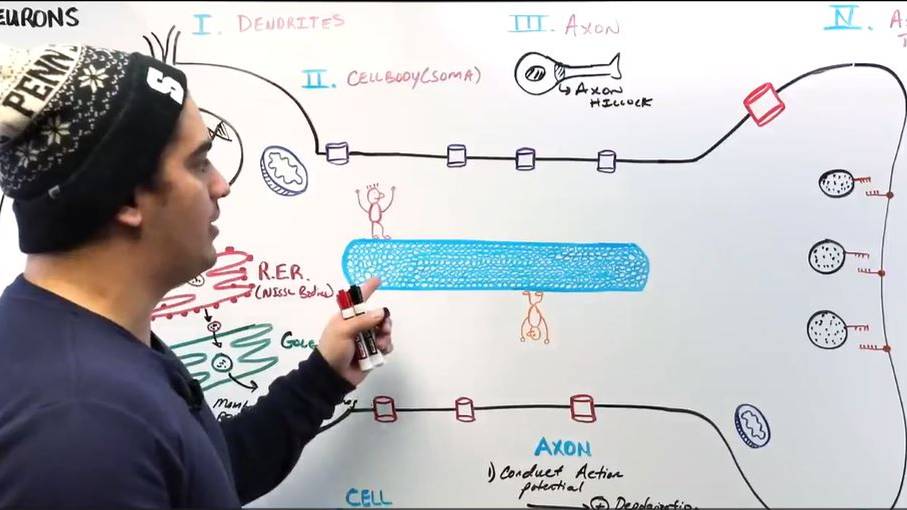 EURONS
I. DENDRITES
III. AXON
IV. A
II. CELL BODY (SOMA)
AXON
HILLOCK
PENN
S
R.E.R.
(NISSL Bodies)
AXON
1) Conduct Action
potential
CELL